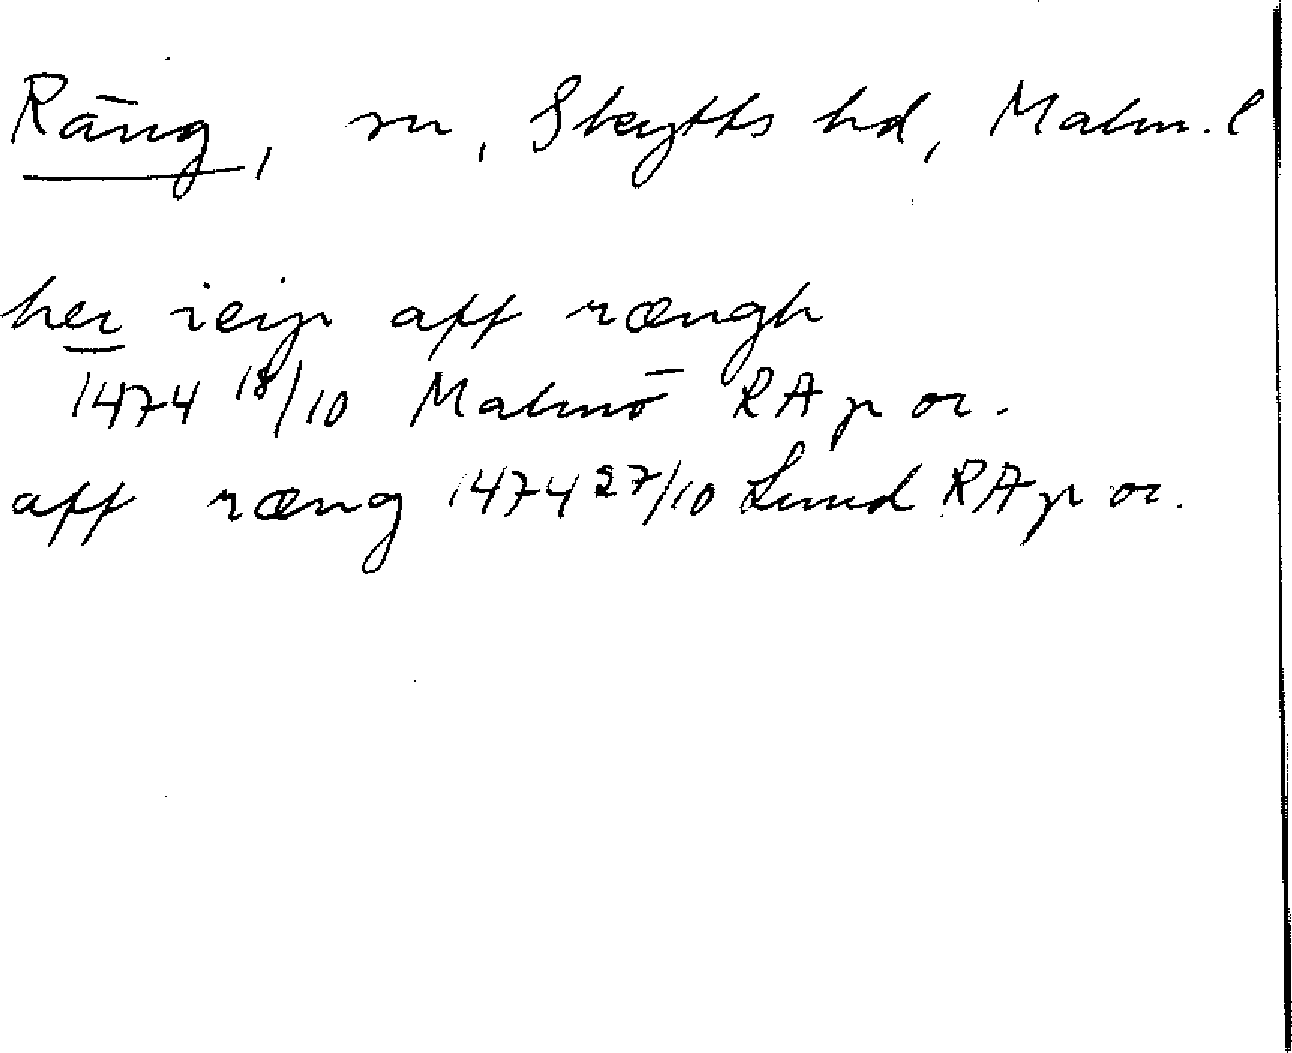 Räng, sn, Skytts hd, Malm. l
her ieip aff rængh
1474 18/10 Malmö RA p or.
aff ræng 1474 27/10 Lund RA p or.